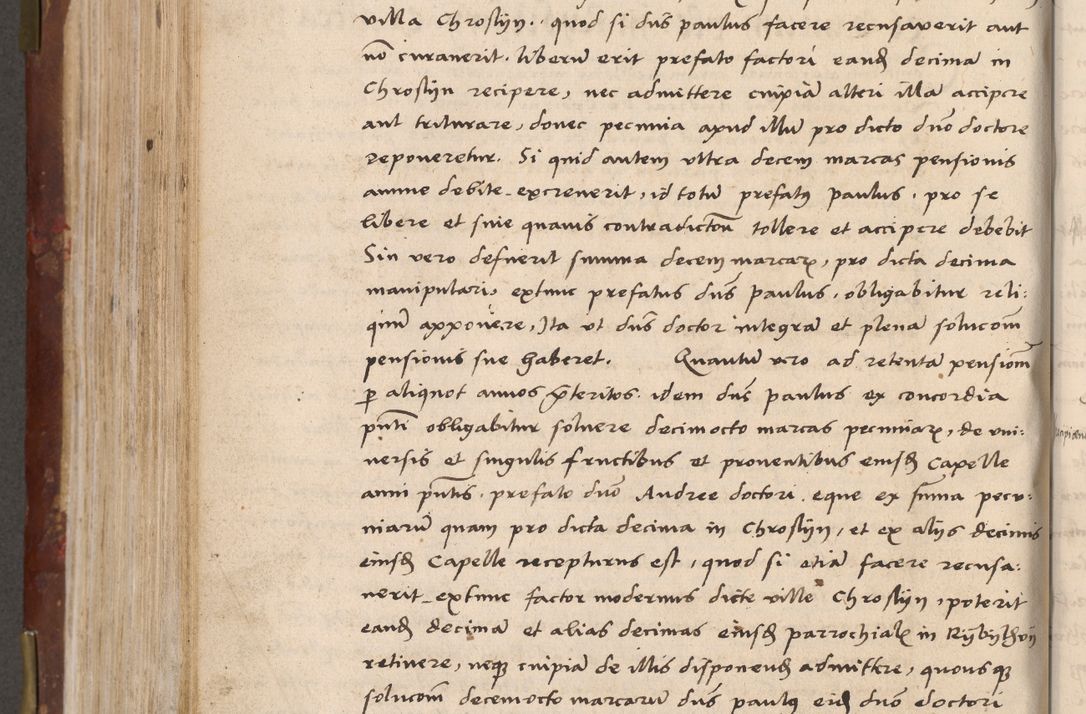 villa Chroslyn. quod si dn̄s paulus facere recusaverit aut
nō curaverit. liberū erit prefato factori eandē decimā in
Chroslyn recipere, nec admittere cuipiā alteri illā accipere
aut triturare, donec pecunia apud illū pro dicto dn̄o doctore
reponeretur. Si quid autem ultra decem marcas pensionis
annue debite excreverit, id totū prefatꝰ paulus. pro se
libere et sine quavis contradictōn tollere et accipere debebit
Sin vero defuerit summa decem marcarꝝ, pro dicta decima
manipulari, extunc prefatus dn̄s paulus, obligabitur reli:
quū apponere, Ita ut dn̄s doctor integrā et plenā solucōm
pensionis sue haberet. Quantū vero ad retentā pensionē
ꝑ aliquot annos p̄teritos. idem dn̄s paulus ex concordia
pn̄ti obligabitur solvere decimocto marcas pecuniarꝝ, de uni:
versis et singulis fructibus et proventibus eiusdē Capelle
anni pn̄tis. prefato dn̄o Andree doctori. eque ex sum̄a pecu:
niarū quam pro dicta decima in Chroslyn, et ex alijs decimis
eiusdē Capelle recepturus est, quod si etiā facere recusa:
verit extunc factor modernus dicte ville Chroslyn, poterit
eandē decimā et alias decimas eiusdē parrochialꝭ in
retinere, neqꝫ cuipiā de illis disponendē admittere, quousqꝫ
solucōm decemocto marcarū dn̄s paulꝰ eidē dn̄o doctori